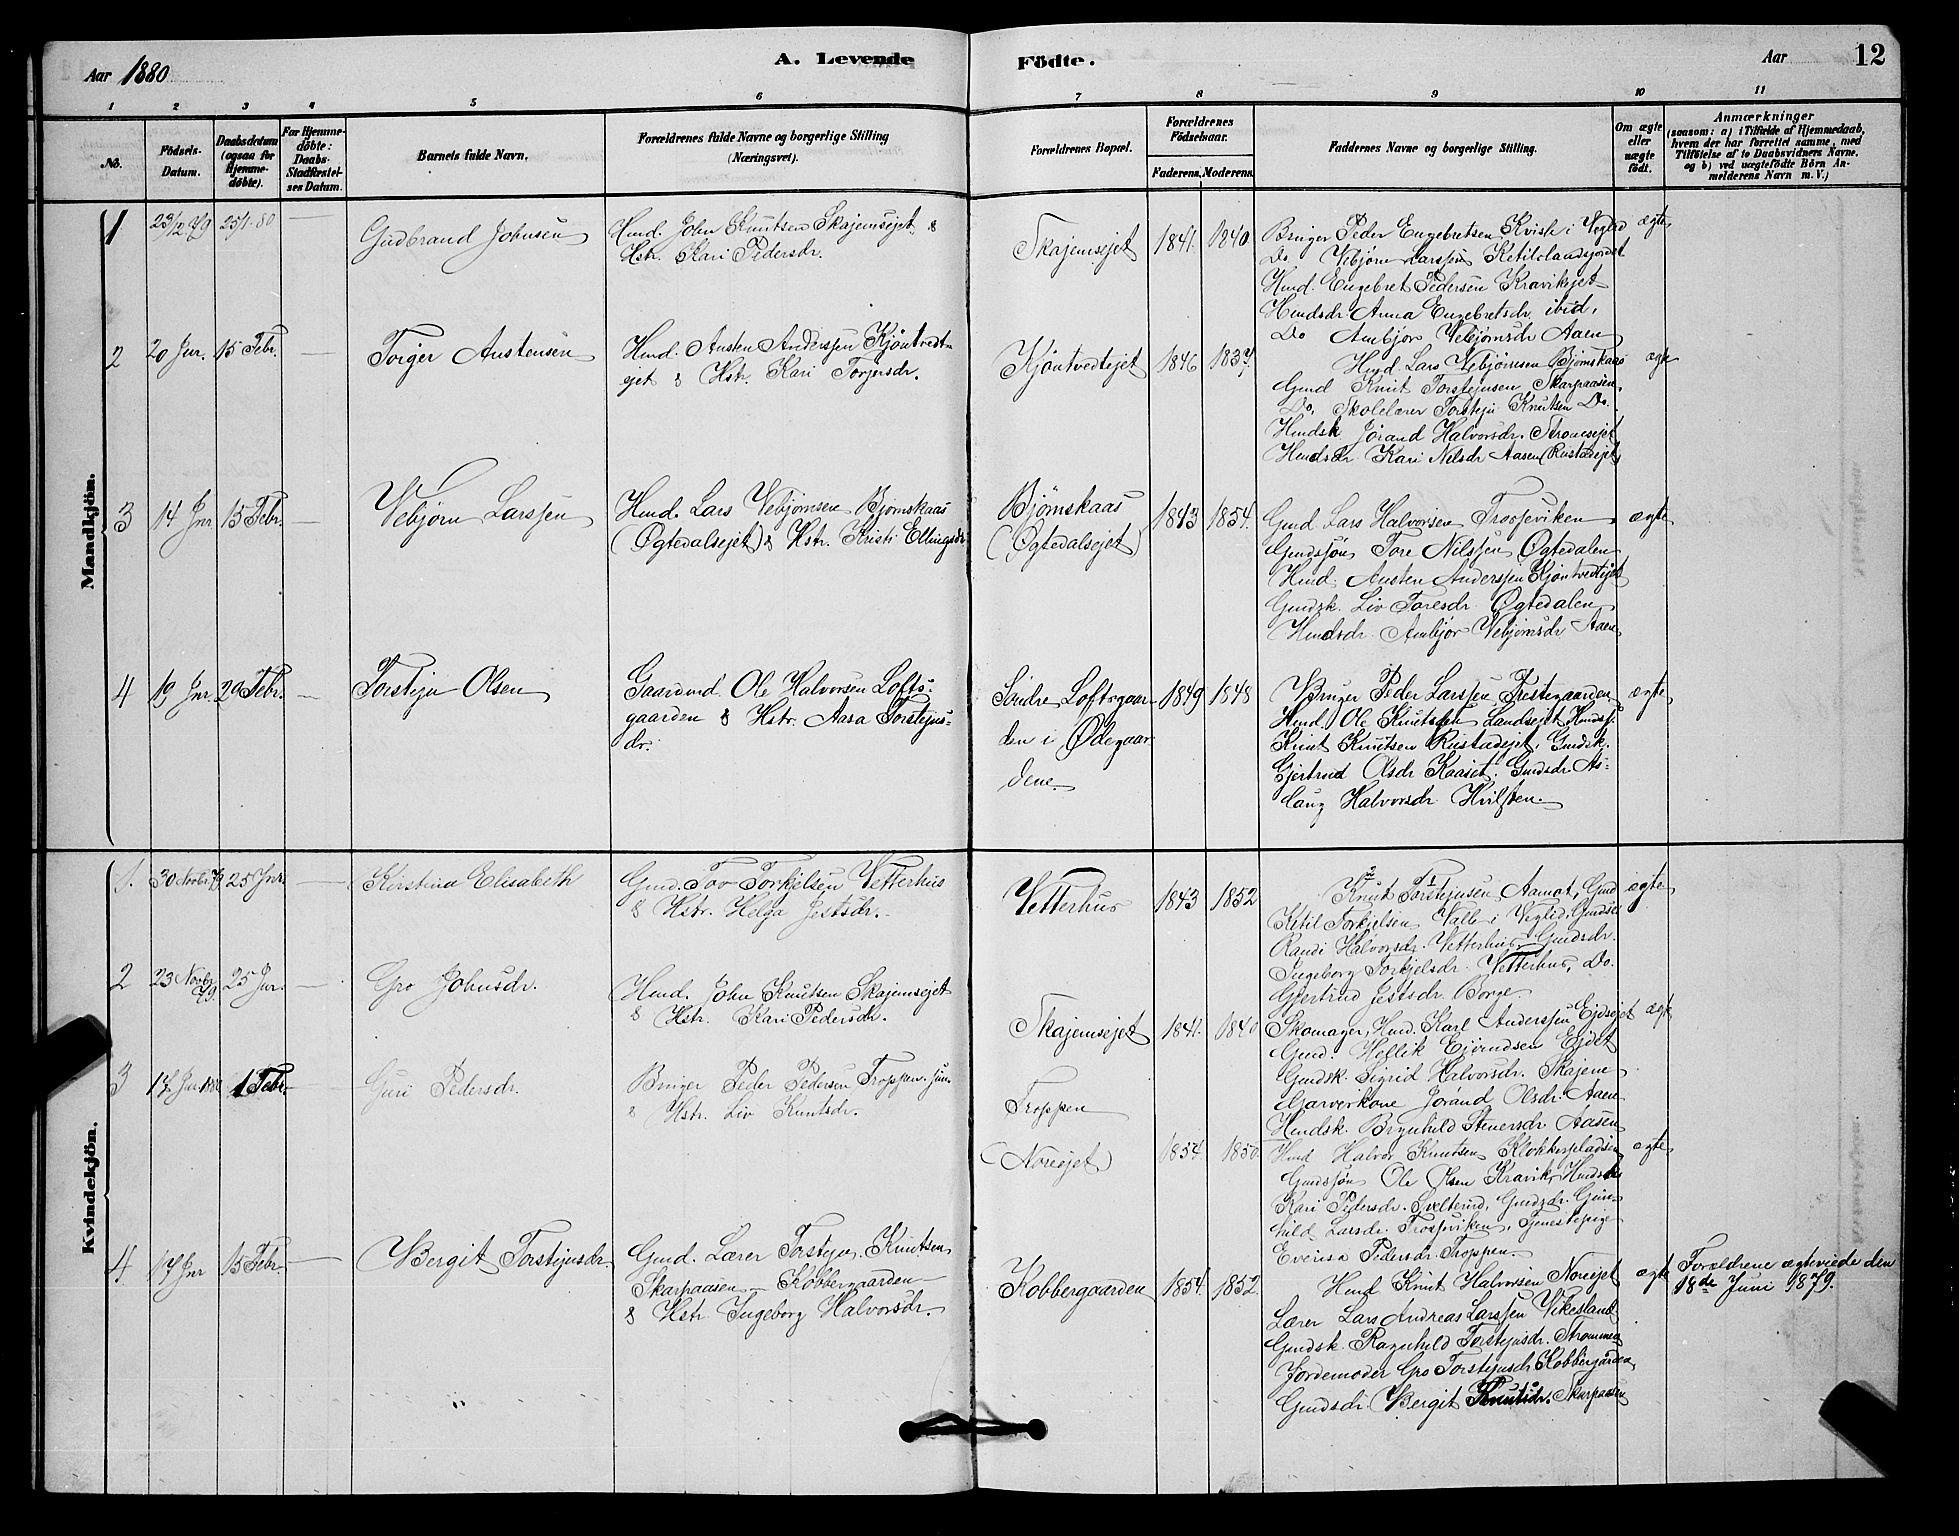 Aar 1880
A. Levende Födte.
Aar
12
1 2 3 4 5 6 7 8 9 10 11
No.
Födsels-
Datum.
Daabsdatum
(ogsaa for
Hjemme-
döbte).
For Hjemme-
döbte:
Daabs-
Stadfæstel-
ses Datum.
Barnets fulde Navn.
Forældrenes fulde Navne og borgerlige Stilling
(Næringsvei).
Forældrenes Bopæl.
Forældrenes
Födselsaar.
Faderens. Moderens.
Faddernes Navne og borgerlige Stilling.
Om ægte
eller
uægte
födt.
Anmærkninger
(saasom: a) i Tilfælde af Hjemmedaab,
hvem der har forrettet samme, med
Tilföielse af to Daabsvidners Navne,
og b) ved uægtefödte Börn An-
melderens Navn m. V.)
Mandkjön.
1
23/12 79
25/1-80
Gudbrand Johnsen
Hmd. John Knutsen Skajemsejet &
Hstr. Kari Pedersdr.
Skajemsejet
1841. 1840
Bruger Peder Engebretsen Kvisle i Veglid
Do Vebjørn Larssen Ketilslandsjordet
Hmd. Engebret Pedersen Kraviksjet
Hmdsdr. Anna Engebretsdr. ibid.
Do Ambjør Vebjørnsdr Aaen
ægte
2
20 Jnr.
15 Febr.
Torger Austensen
Hmd. Austen Anderssen Kjøntvedt-
ejet & Hstr. Kari Torjersdr.
Kjøntvedtejet
1846 1837
Hmd. Lars Vebjørnsen Bjørnskaas
Gmd Knut Torstejnsen Skarpaasen.
Do. Skolelærer Torstejn Knutsen Do.
Hmdsk Jørand Halvorsdr. Stromsejet
Hmdsdr Kari Nilsdr Aasen (Rustadejet)
ægte
3
14 Jnr
15 Febr.
Vebjørn Larssen
Hmd. Lars Vebjørnsen Bjørnskaas
(Øgtedalsejet) & Hstr. Kristi Ellingsdr
Bjørnskaas
(Øgtedalsejet)
1843 1854.
Gmd. Lars Halvorsen Frosseviken
Gmdssøn Tore Nilssen Øgtedalen
Hmd. Austen Anderssen Kjøntvedtejet
Gmdsk. Liv Toresdr. Øgtedalen
Hmdsdr. Ambjør Vebjørnsdr Aaen
ægte
4
19 Jnr.
29 Febr.
Torstejn Olsen
Gaardmd. Ole Halvorsen Lofts-
gaarden & Hstr. Aasa Torstejns-
dr.
Søndre Loftsgaar-
den i Ødegaar
dene.
1849 1848
Bruger Peder Larssen Prestegaarden
Hmd. Ole Knutssen Landsejet, Hmdss.
Knut Knutsen Rustadejet, Gmdsk.
Gjertrud Olsdr Kaaset. Gmdsdr. As-
laug Halvorsdr. Hvilsten.
ægte
Kvindekjön.
1.
30 Novbr. 79
25 Jnr.
Kirstina Elisabeth
Gmd. Tov Torkjelsen Vetterhus
& Hstr. Helga Jestsdr.
Vetterhus
1843 1852
Knut Torstejnsen Aamot, Gmd
Ketil Torkjelsen Valle i Veglid, Gmdsk
Randi Halvorsdr. Vetterhus, Gmdsdr.
Ingeborg Torkjelsdr. Vetterhus, Do.
Gjertrud Jestsdr. Borge.
ægte
2
23 Novbr. 79.
25 Jnr.
Gro Johnsdr.
Hmd. John Knutsen Skajemsejet
& Hstr. Kari Pedersdr.
Skajemsejet
1841. 1840
Skomager, Hmd. Karl Anderssen Ejdsejet
Gmd. Hellik Ejvindsen Ejdet
Gmdsk. Sigrid Halvorsdr. Skajem
Garverkone Jørand Olsdr. Aaen
Hmdsk. Brynhild Stenersdr Aasen
ægte
3
17 Jnr 1880
1 Febr.
Guri Pedersdr.
Bruger Peder Pedersen Froppen. jun.
& Hstr. Liv Knutsdr.
Froppen
(Norejet)
1854. 1850.
Hmd Halvor Knutsen Klokkerpladsen
Gmdssøn Ole Olsen Kravik, Hmdsk
Kari Pedersdr. Svelterud, Gmdsdr. Gun-
hild Larsdr. Frossviken, Tjenestepige
Everisa Pedersdr. Froppen.
ægte
4
17 Jnr
15 Febr.
Bergit Torstejnsdr.
Gmd. Lærer Torstejn Knutsen
Skarpaasen - Kobbergaarden
& Hstr. Ingeborg Halvorsdr.
Kobbergaarden
1854. 1852.
Hmd Knut Halvorsen Norejet
Lærer Lars Andreas Larssen Vikesland.
Gmdsk. Ragnhild Torstejnsdr. Strommen
Jordemoder Gro Torstejnsdr Kobbergaarden
Gmdsdr. Bergit Knutsdr. Skarpaasen
ægte
Forældrene ægteviede den
18de Juni 1879.